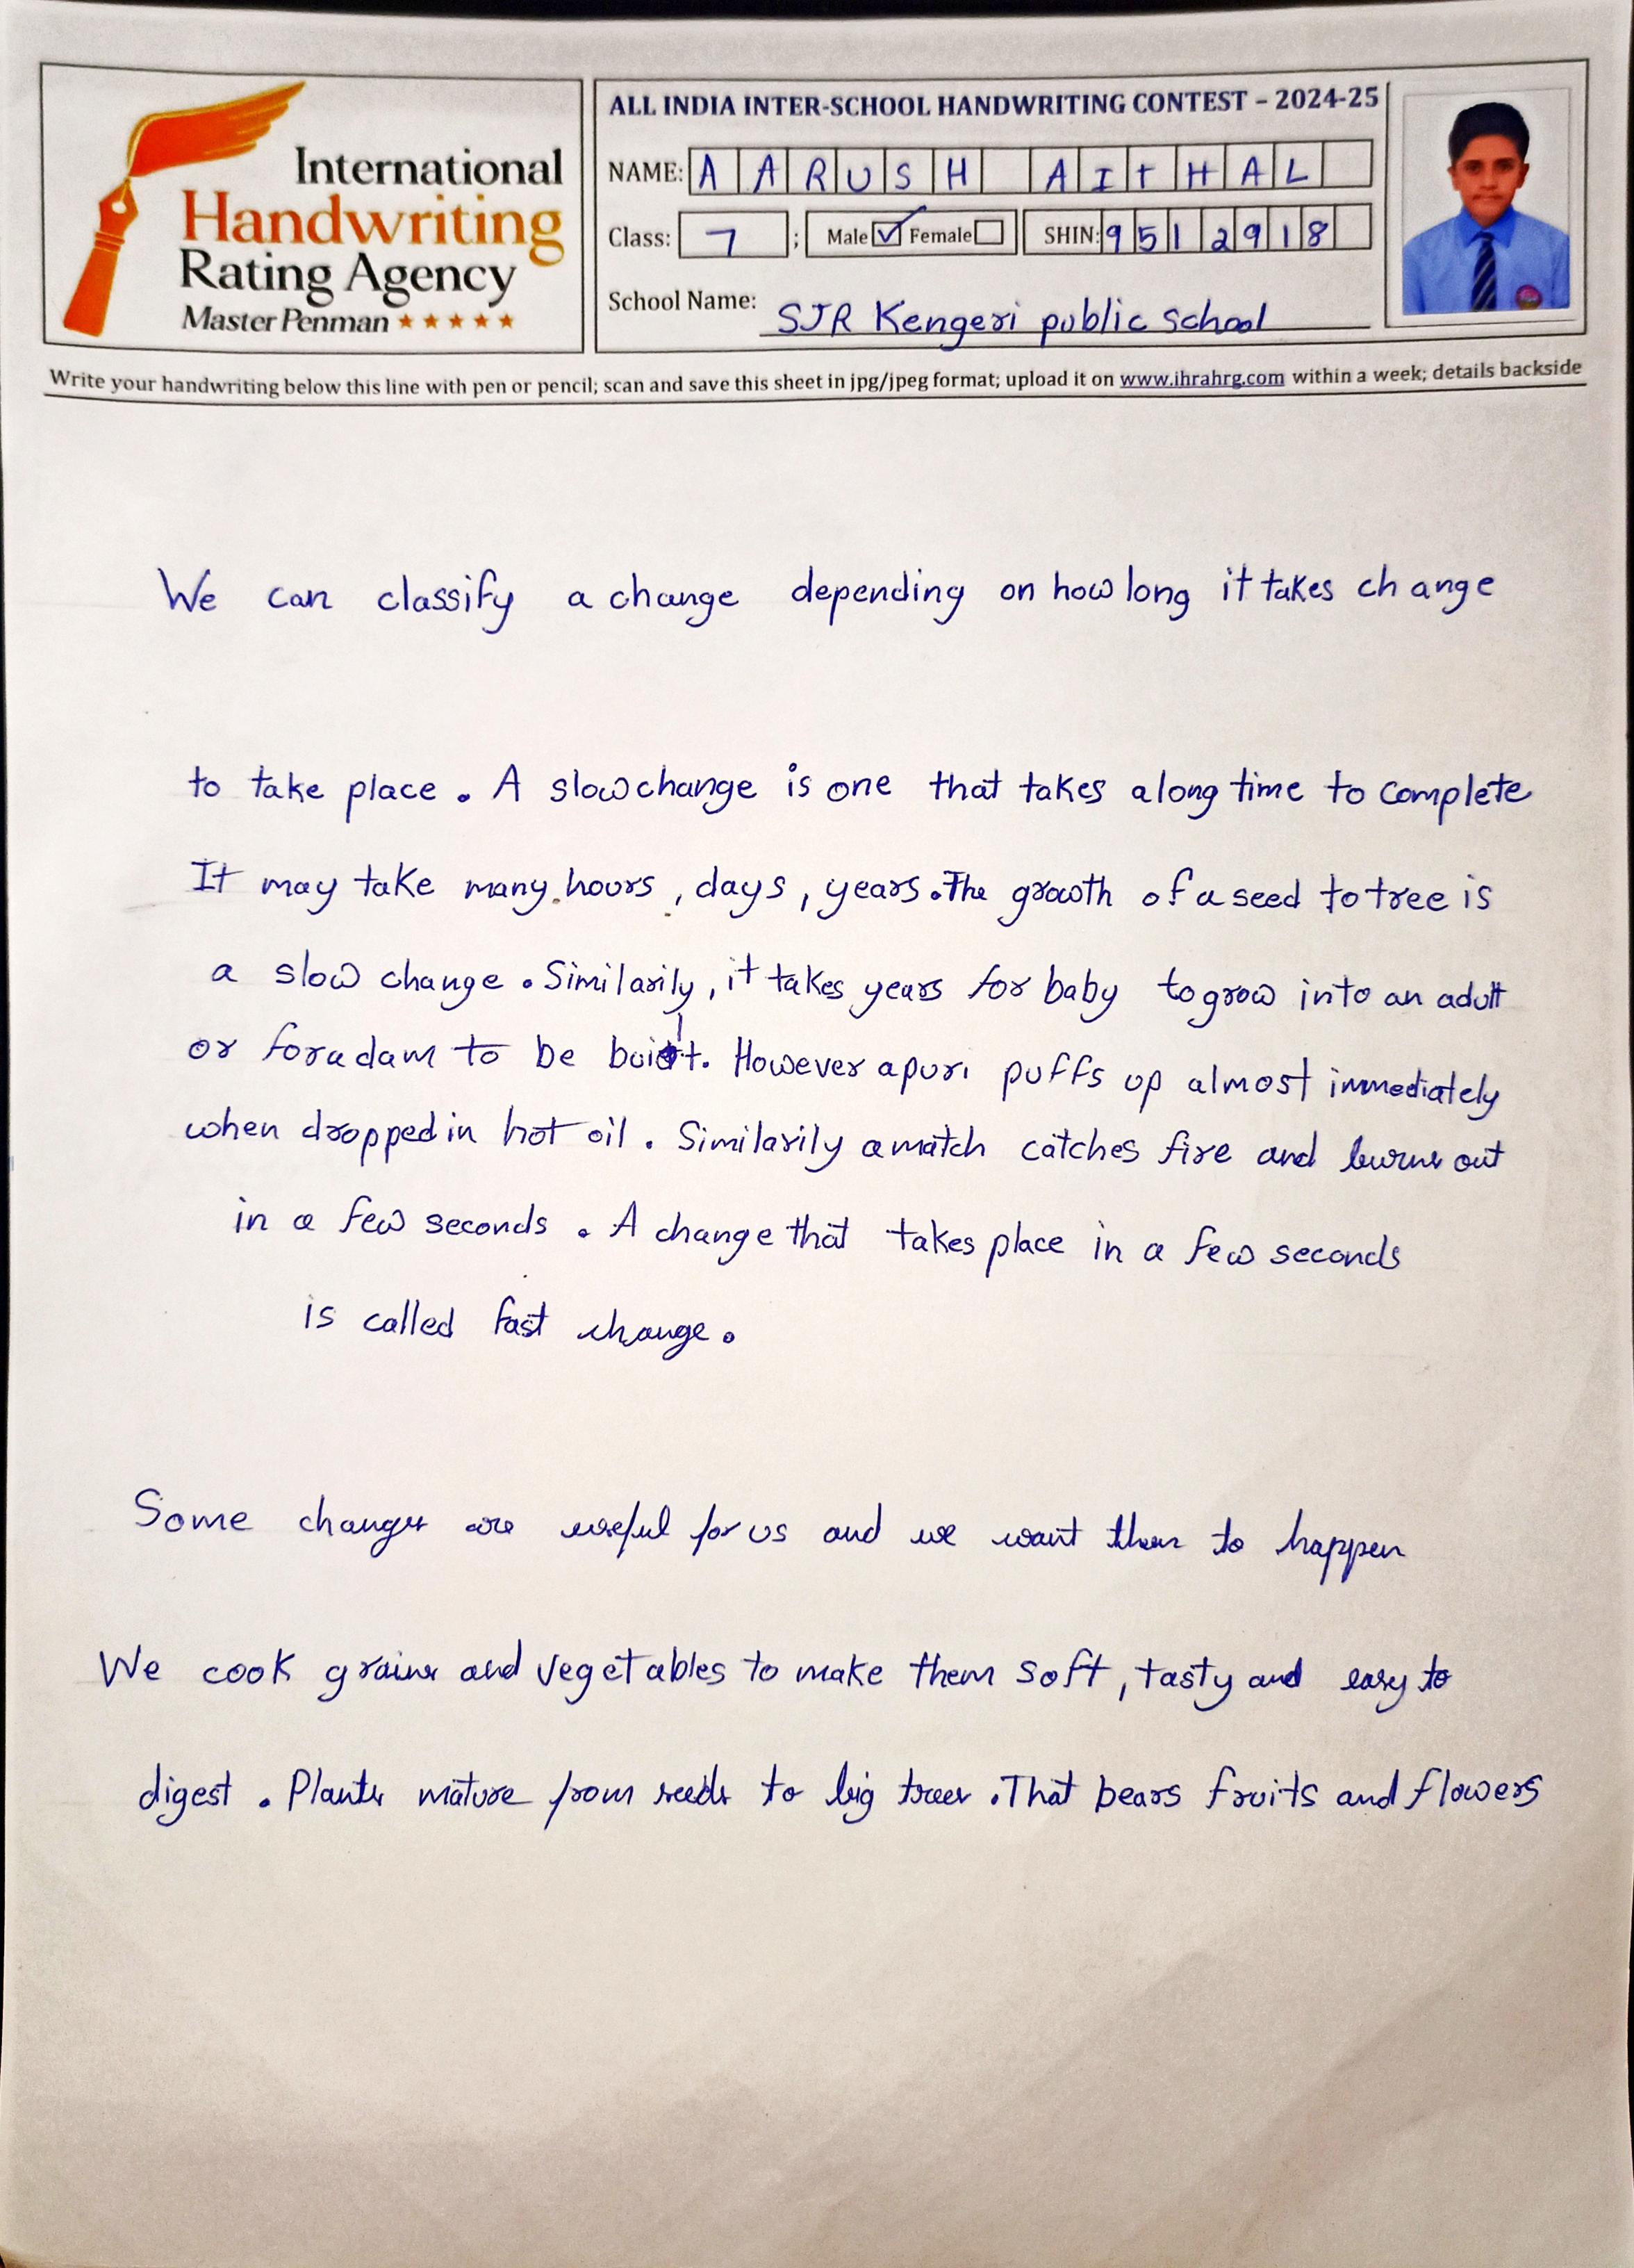 International
Handwriting
Rating Agency
Master Penman ★★★★★
ALL INDIA INTER-SCHOOL HANDWRITING CONTEST – 2024-25
NAME: AARUSH AITHAL
Class: 7 ; Male ☑ Female ☐ SHIN: 9512918
School Name: SJR Kengeri public school
Write your handwriting below this line with pen or pencil; scan and save this sheet in jpg/jpeg format; upload it on www.ihrahrg.com within a week; details backside
We can classify a change depending on how long it takes change
to take place. A slow change is one that takes a long time to complete
It may take many hours, days, years. The growth of a seed to tree is
a slow change. Similarily, it takes years for baby to grow into an adult
or for a dam to be built. However a puri puffs up almost immediately
when dropped in hot oil. Similarily a match catches fire and burns out
in a few seconds. A change that takes place in a few seconds
is called fast change.
Some changes are useful for us and we want them to happen
We cook grains and vegetables to make them soft, tasty and easy to
digest. Plants mature from seeds to big trees. That bears fruits and flowers